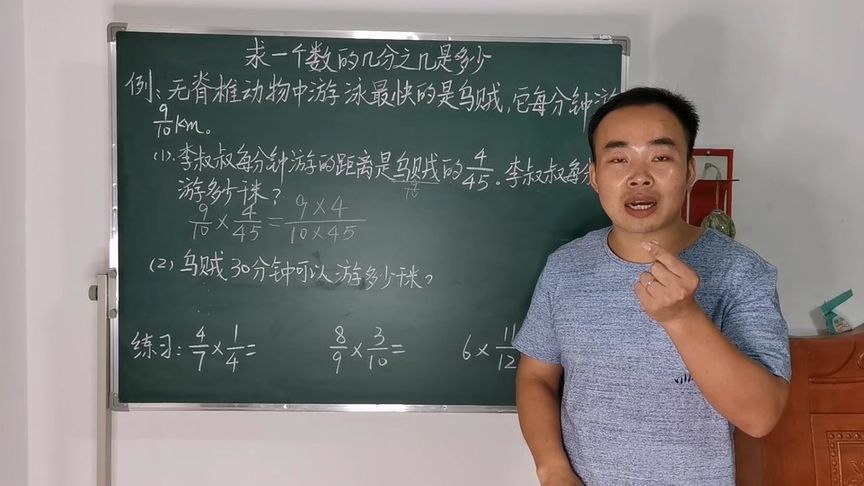 求一个数的几分之几是多少
例:无脊椎动物中游泳最快的是乌贼,它每分钟游
9/10 km。
(1).李叔叔每分钟游的距离是乌贼的4/45.李叔叔每分
游多少千米?
9/10 × 4/45 = 9×4/10×45
(2) 乌贼30分钟可以游多少千米?
练习: 4/7 × 1/4 = 8/9 × 3/10 = 6 × 11/12